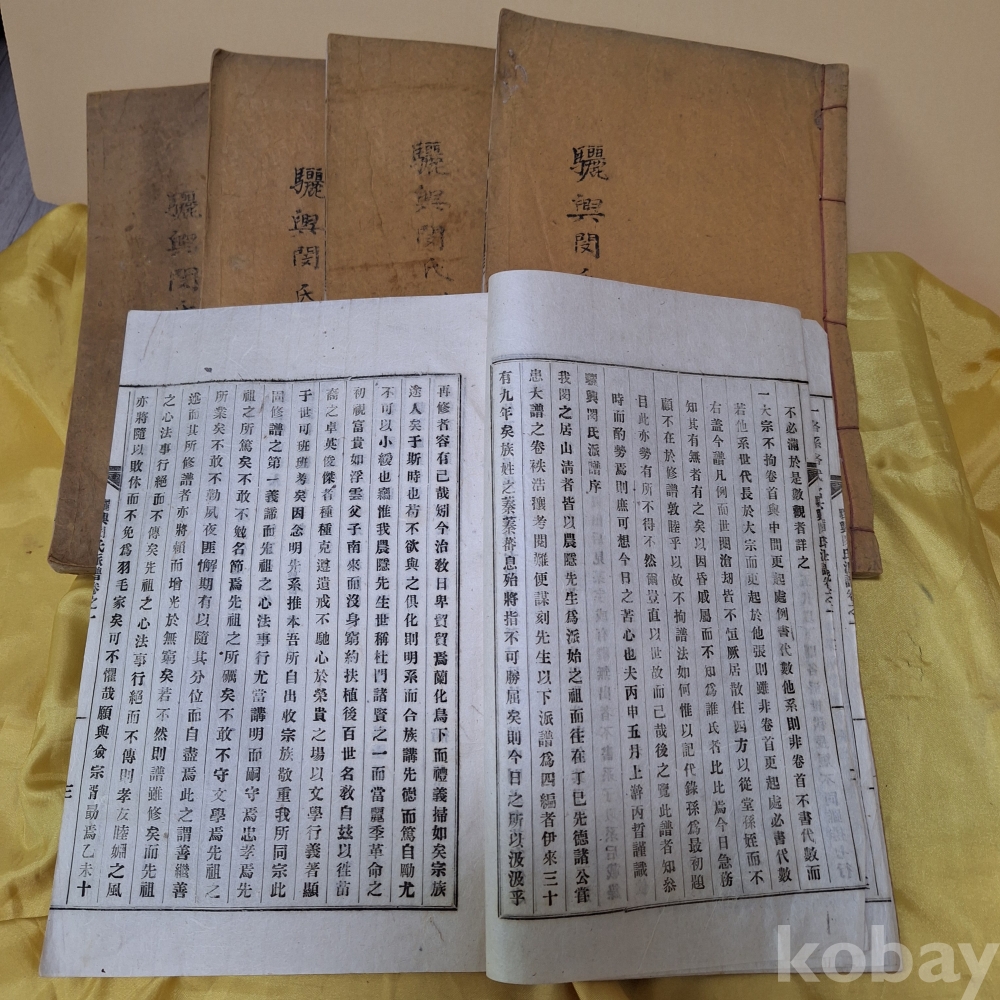 驪興閔氏
驪興閔氏
驪興閔氏
驪興閔氏
不必滿於是數觀者詳之
一大宗不拘卷首與中間更起處例書代數他系則非卷首不書代數而
若他系世代長於大宗而更起於他張則雖非卷首更起處必書代數
右盖今譜凡例而世閱滄刼皆不恒厥居散住四方以從堂孫姪而不
知其有無者有之矣以因昏戚屬而不知爲誰氏者比比焉今日急務
顧不在於修譜敦睦乎以故不拘譜法如何惟以記代錄孫爲最初題
目此亦勢有所不得不然爾豈直以世故而已哉後之覽此譜者知叅
時而酌勢焉則庶可想今日之苦心也夫丙申五月上澣丙哲謹識
驪興閔氏派譜序
我閔之居山清者皆以農隱先生爲派始之祖而往在丁巳先德諸公嘗
患大譜之卷秩浩穰考閱羅便謀刻先生以下派譜爲四編者伊來三十
有九年矣族姓之蓁蓁蕃息殆將指不可勝屈矣則今日之所以汲汲乎
再修者容有已哉矧今治敎日卑貿貿焉蘭化鳥下而禮義掃如矣宗族
途人矣于斯時也苟不欲與之俱化則明系而合族講先德而篤自勖尤
不可以小緩也竊惟我農隱先生世稱杜門諸賢之一而當麗季革命之
初視富貴如浮雲父子南來而沒身窮約扶植後百世名敎自玆以徃當
裔之卓英俊傑者種種克遵遺戒不馳心於榮貴之場以文學行義著顯
于世可班班考矣因念明先系推本吾所自出收宗族敬重我所同宗此
固修譜之第一義諦而先祖之心法事行尤當講明而嗣守爲忠孝焉先
祖之所篤矣不敢不勉名節焉先祖之所礪矣不敢不守文學焉先祖之
所業矣不敢不勤夙夜匪懈期有以隨其分位而自盡焉此之謂善繼善
述而其所修譜者亦將賴而增光於無窮矣若不然則譜雖修矣而先祖
之心法事行絕而不傳矣先祖之心法事行絕而不傳則孝友睦婣之風
亦將隨以敗休而不免爲羽毛家矣可不懼哉願與僉宗胥勖焉乙未十
驪興閔氏派譜卷之一
三
kobay